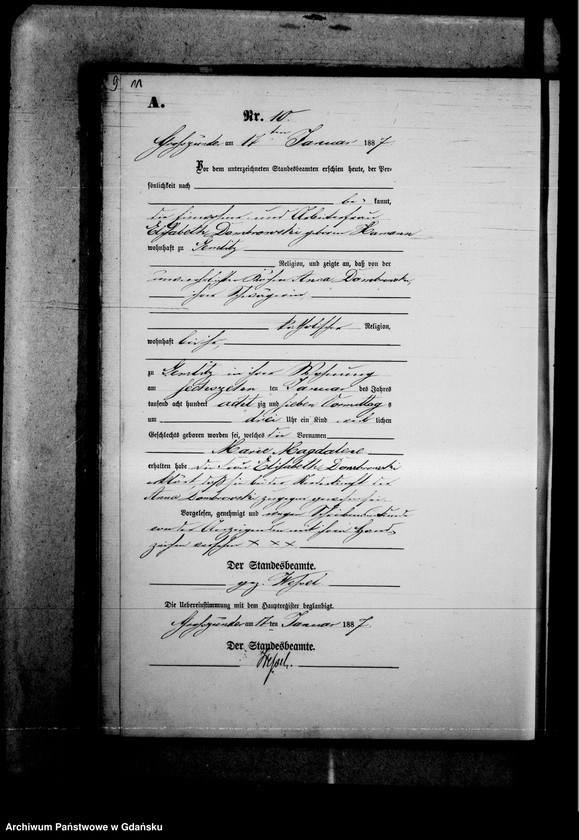 9 11
A.
Nr. 10.
am 17ten Januar 1887
Vor dem unterzeichneten Standesbeamten erschien heute, der Per-
sönlichkeit nach
be kannt,
die und Arbeiterfrau
Elisabeth Dombrowski geborne Hamann
wohnhaft zu Gemlitz
Religion, und zeigte an, daß von der
unverehelichten Anna Dombrowski,
ihrer Schwägerin
katholischer Religion,
wohnhaft bei ihr,
zu Gemlitz in ihrer Wohnung
am sechszehnten ten Januar des Jahres
tausend acht hundert acht zig und sieben Vormittag s
um drei Uhr ein Kind weib lichen
Geschlechts geboren worden sei, welches die Vornamen
Marie Magdalene
erhalten habe. Die Elisabeth Dombrowski
erklärt daß sie bei der Niederkunft der
Anna Dombrowski zugegen gewesen sei.
Vorgelesen, genehmigt und wegen
von der Anzeigenden mit ihrem Hand
zeichen versehen + + +.
Der Standesbeamte.
gez. Wessel
Die Uebereinstimmung mit dem Hauptregister beglaubigt.
am 17 ten Januar 1887.
Der Standesbeamte.
Wessel.
Archiwum Państwowe w Gdańsku